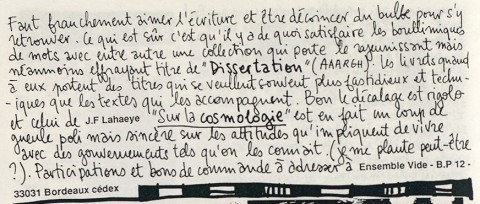 Faut franchement aimer l'écriture et être décrincer du bulbe pour s'y
retrouver. Ce qui est sûr c'est qu'il y a de quoi satisfaire les boullimiques
de mots avec entre autre une collection qui porte le rajeunissant mais
néanmoins effrayant titre de "Dissertation" (AAARGH). Les livrets quand
à eux portent des titres qui se veullent souvent plus fastidieux et techn-
-iques que les textes qui les accompagnent. Bon le décalage est rigolo
et celui de J.F Lahaeye "Sur la cosmologie" est en fait un coup de
gueule poli mais sincère sur les attitudes qu'impliquent de vivre
avec des gouvernements tels qu'on les connait. (je me plante peut-être
?). Participations et bons de commande à adresser à Ensemble Vide - B.P 12 -
33031 Bordeaux cédex